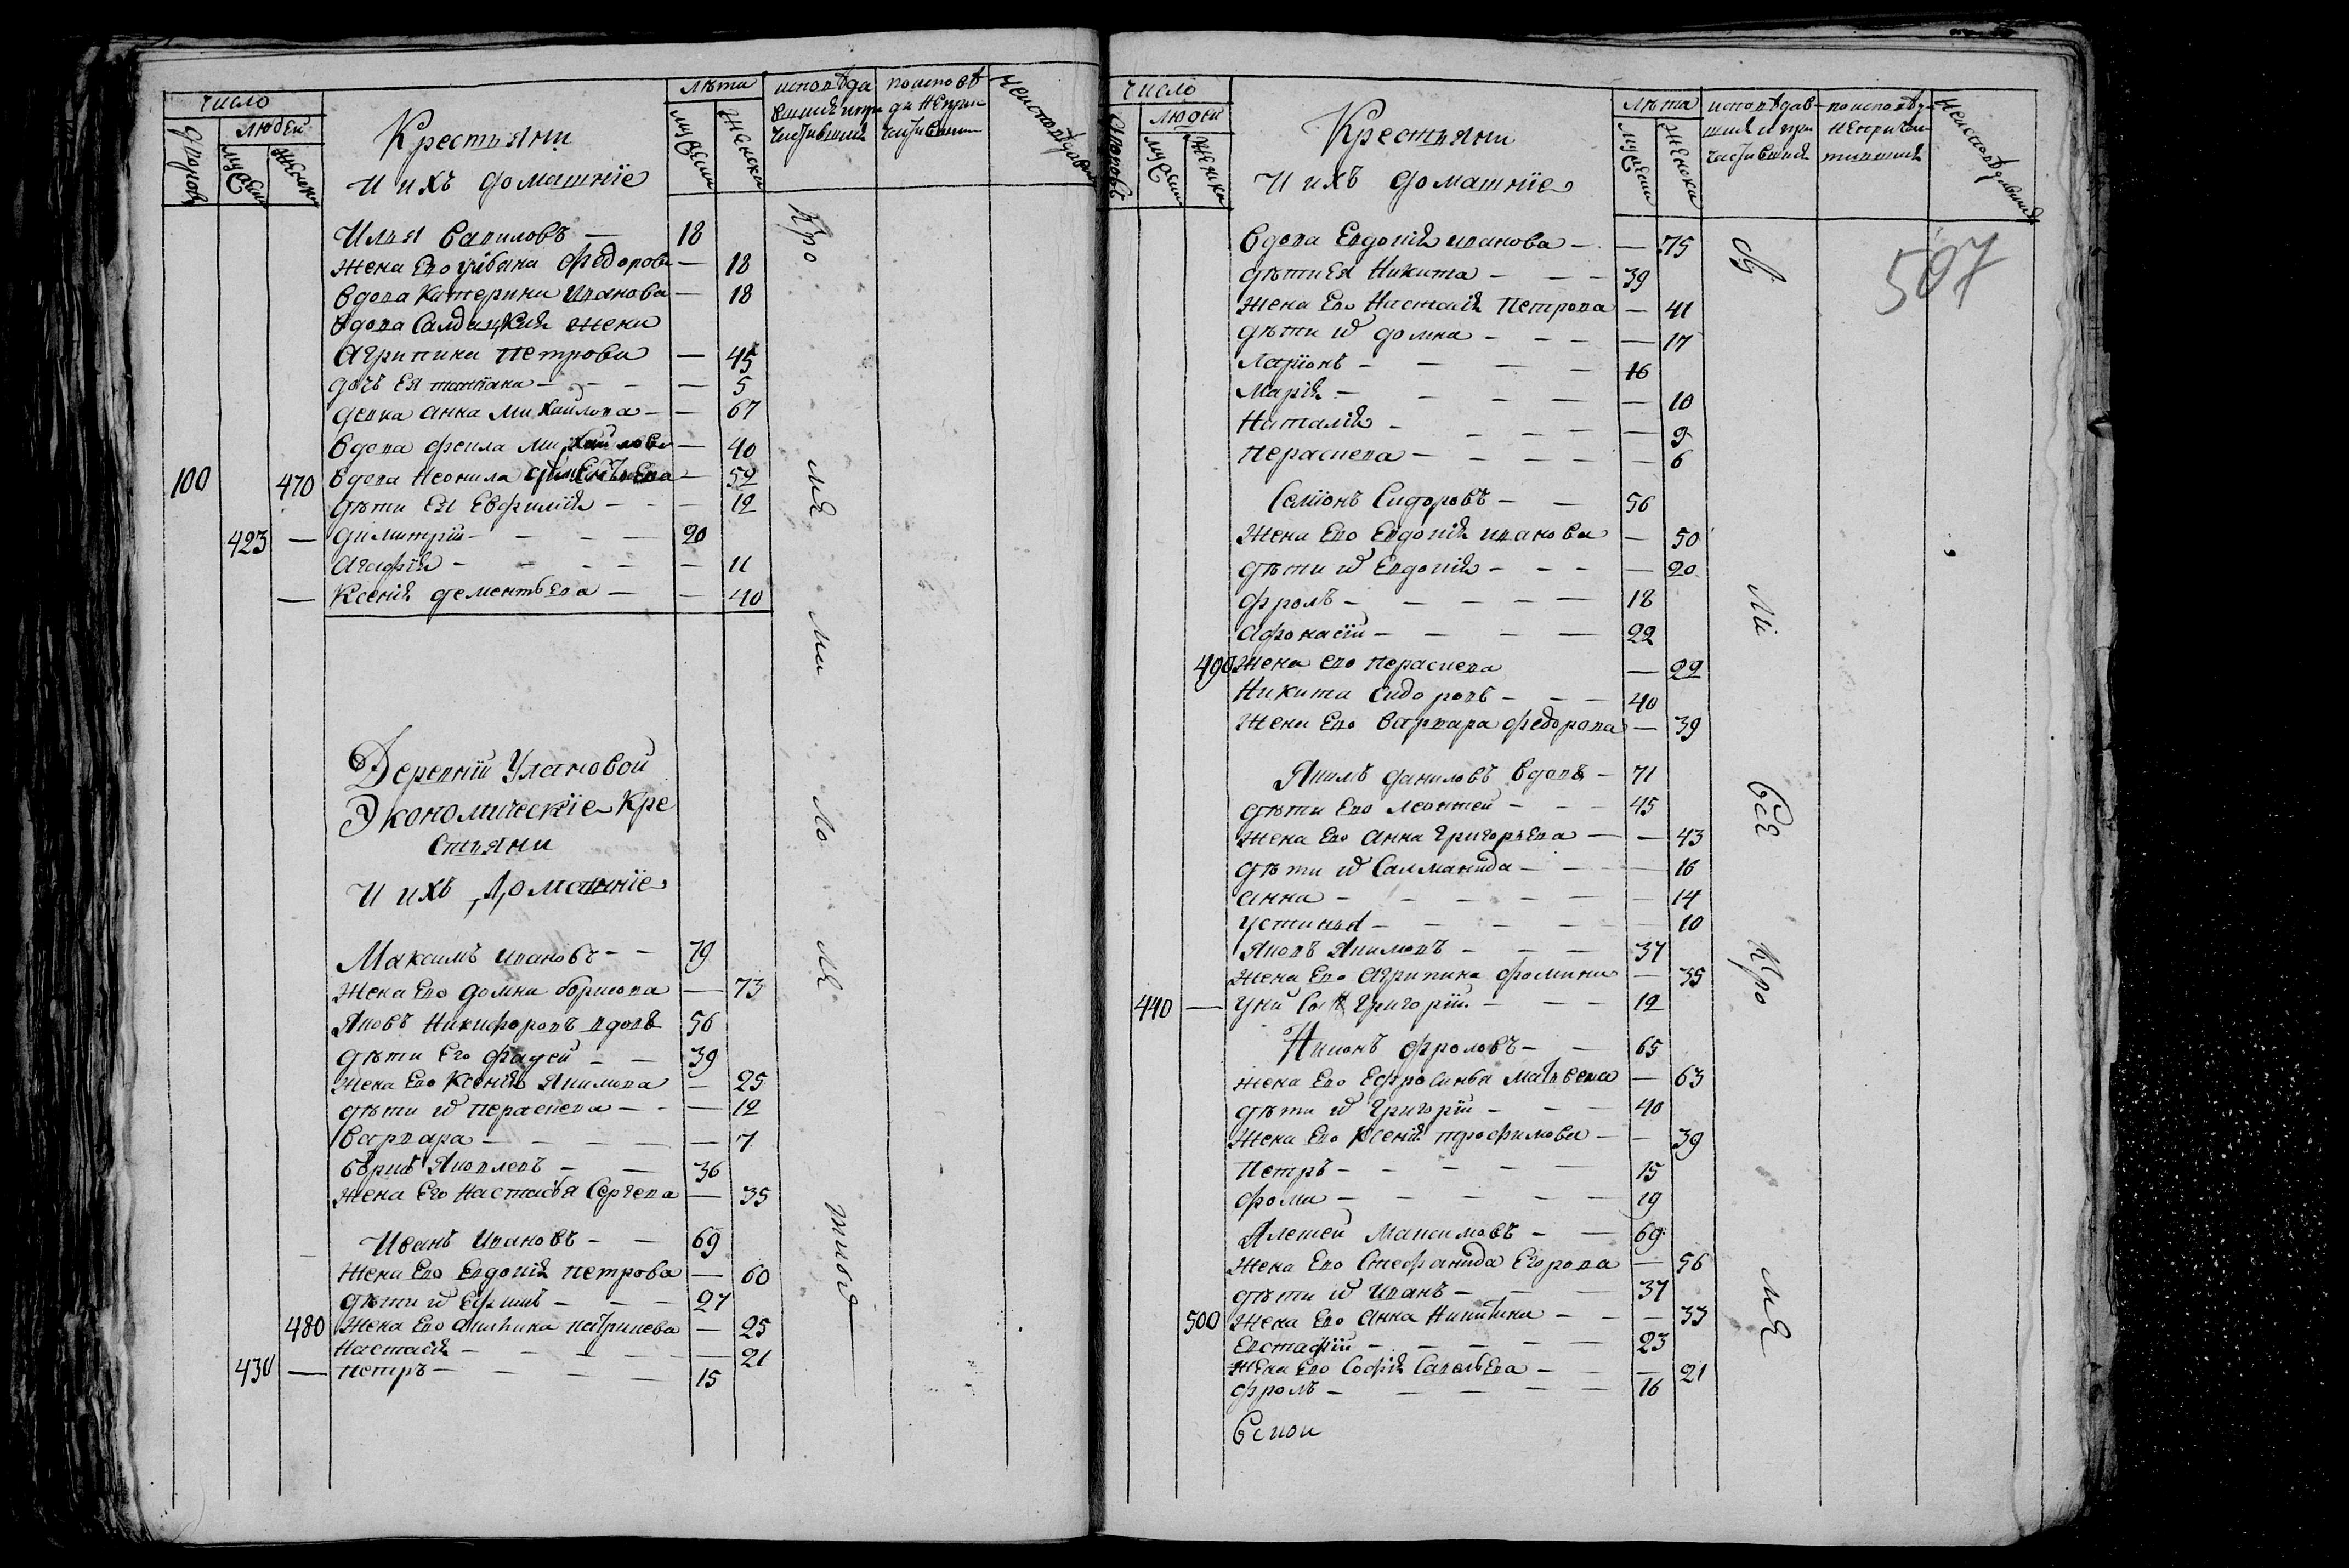 число
людей
дворовъ
мужеска
женска
Крестьяни
и ихъ домашніе
лѣта
мужеска
женска
исповѣда
вшияся и при
частившияся
по исповѣ
да непри
частившия
Неисповѣдавш
Илья Вавиловъ — 18
жена Его уліѣяна федорова — 18
вдова Катерина Иванова — 18
вдова Салдацкая жена
Агрипина петрова — 45
дочъ Ея татіана — 5
девка анна михайлова — 67
вдова михайлова — 40
100 470 вдова Неонила — 52
дѣти Ея Евфимія — 12
423 — димитрій — 20
Агафія — 11
— Ксенія дементьева — 40
Деревній Улановой
Экономическіе Кре
стьяни
И ихъ Домашніе
Максимъ ивановъ — 79
жена Его домна борисова — 73
Яковъ Никифоровъ вдовъ 56
дѣти Его фадей — 39
жена Его Ксенія Якимова — 25
дѣти Ѿ Параскева — 12
варвара — 7
борисъ Яковлевъ — 36
жена Его Настасья Сергева — 35
Иванъ Ивановъ — 69
жена Его Евдокия петрова — 60
дѣти Ѿ Ефимъ — 27
480 жена Его — 25
Настасія — 21
430 — петръ — 15
Кро
мя
ма
ло
ля
тнова
число
людей
дворовъ
мужеска
женска
Крестьяни
И ихъ домашніе
лѣта
мужеска
женска
исповѣдав
шия и при
частившия
по исповѣ
непричаст
тившия
Неисповѣдавшия
507
вдова Евдокия иванова — 75
дѣти Ея Никита — 39
жена Его Настасія Петрова — 41
дѣти Ѿ домна — 17
Ларіонъ — 16
Марія — 10
Наталія — 9
Параскева — 6
Семіонъ Сидоровъ — 56
жена Его Евдокия иванова — 50
дѣти Ѿ Евдокия — 20
фролъ — 18
Афонасій — 22
490 жена его Параскева — 22
Никита Сидоровъ — 40
жена Его Варвара федорова — 39
Якимъ даниловъ вдовъ — 71
дѣти Его леонтей — 45
жена Его Анна Григорьева — 43
дѣти Ѿ Саламанида — 16
анна — 14
Устинья — 10
Яковъ Якимовъ — 37
жена Его Агрипина фомина — 35
440 — у ни Сонъ Григорій — 12
Никонъ фроловъ — 65
жена Его Ефросинья Матвеева — 63
дѣти Ѿ Григорій — 40
жена Его Ксенія трофимова — 39
Петръ — 15
фома — 19
Алексей Максимовъ — 69
жена Его Стефанида Егорова — 56
дѣти Ѿ Иванъ — 37
500 жена Его Анна Никитина — 33
Евстафій — 23
жена Его Софія Савельева — 21
фролъ — 16
Всѣ
Кро
мя